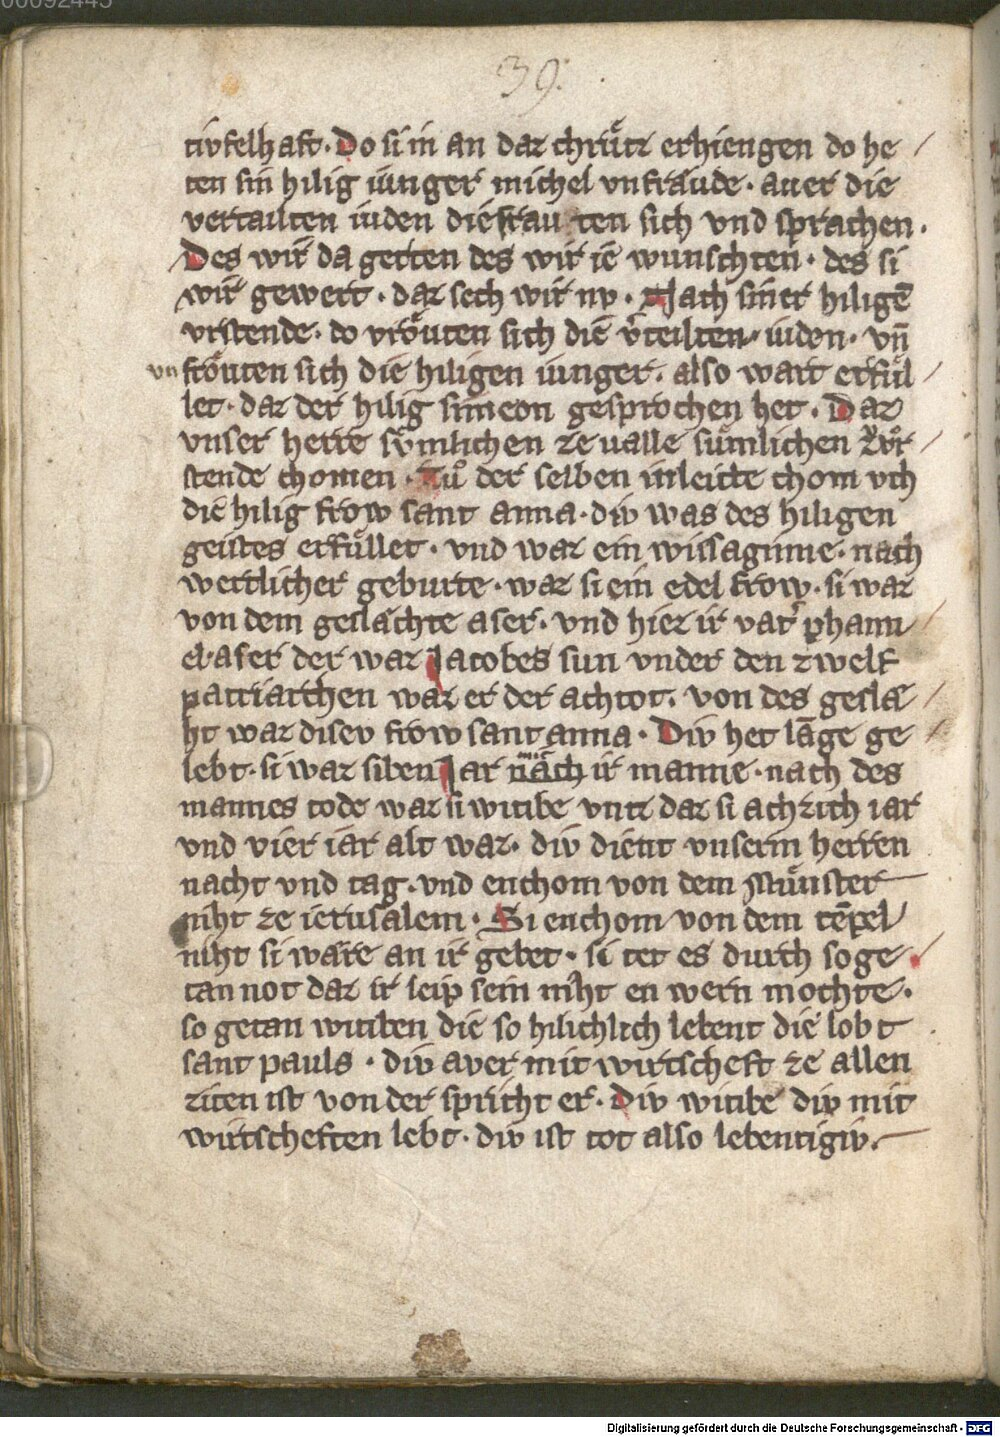 00092445
39.
tivfelhaft. Do si in an daz chrůtz erhiengen do he
ten sin hilig iunger michel vnfraude. auer die
vertailten iuden die frau ten sich vnd sprachen.
Des wir da getten des wir ie wunschten. des si
wir gewert. daz sech wir nv. Nach siner hiligē
vrstende. do vroͤuten sich die v̓teilten. iuden. vn̄
vn froͤuten sich die hiligen iunger. also wart erfuͤl
let. daz der hilig simeon gesprochen het. Daz
vnser herre sv̊mlichen ze ualle suͤmlichen zv̊ vr
stende chomen. Nuͦ der selben inleitte chom vch
die hilig frow sant anna. div was des hiligen
geistes erfuͤllet. vnd waz ein wissaginne. nach
wertlicher geburte. waz si ein edel frow. si waz
von dem geslachte aser. vnd hiez ir vat̓ phanu
el. aser der waz Jacobes sun vnder den zwelf
patriarchen waz er der achtot. von des gesla
ht waz disev frow sant anna. Div het lāge ge
lebt. si waz siben Jar nach mit ir manne. nach des
mannes tode waz si witibe vntz daz si achzich iar
vnd vier iar alt waz. div dient vnserm herren
nacht vnd tag. vnd enchom von dem Muͤnster
niht ze ierusalem. Si enchom von dem tēpel
niht si ware an ir gebet. si tet es durch so ge
tan not daz ir leip sein niht en wern mochte.
so getan witiben die so hilichlich lebent die lobt
sant pauls. div aver mit wirtscheft ze allen
ziten ist von der spricht er. Div witibe div mit
wirtscheften lebt. div ist tot also lebentigiv.
Digitalisierung gefördert durch die Deutsche Forschungsgemeinschaft - DFG